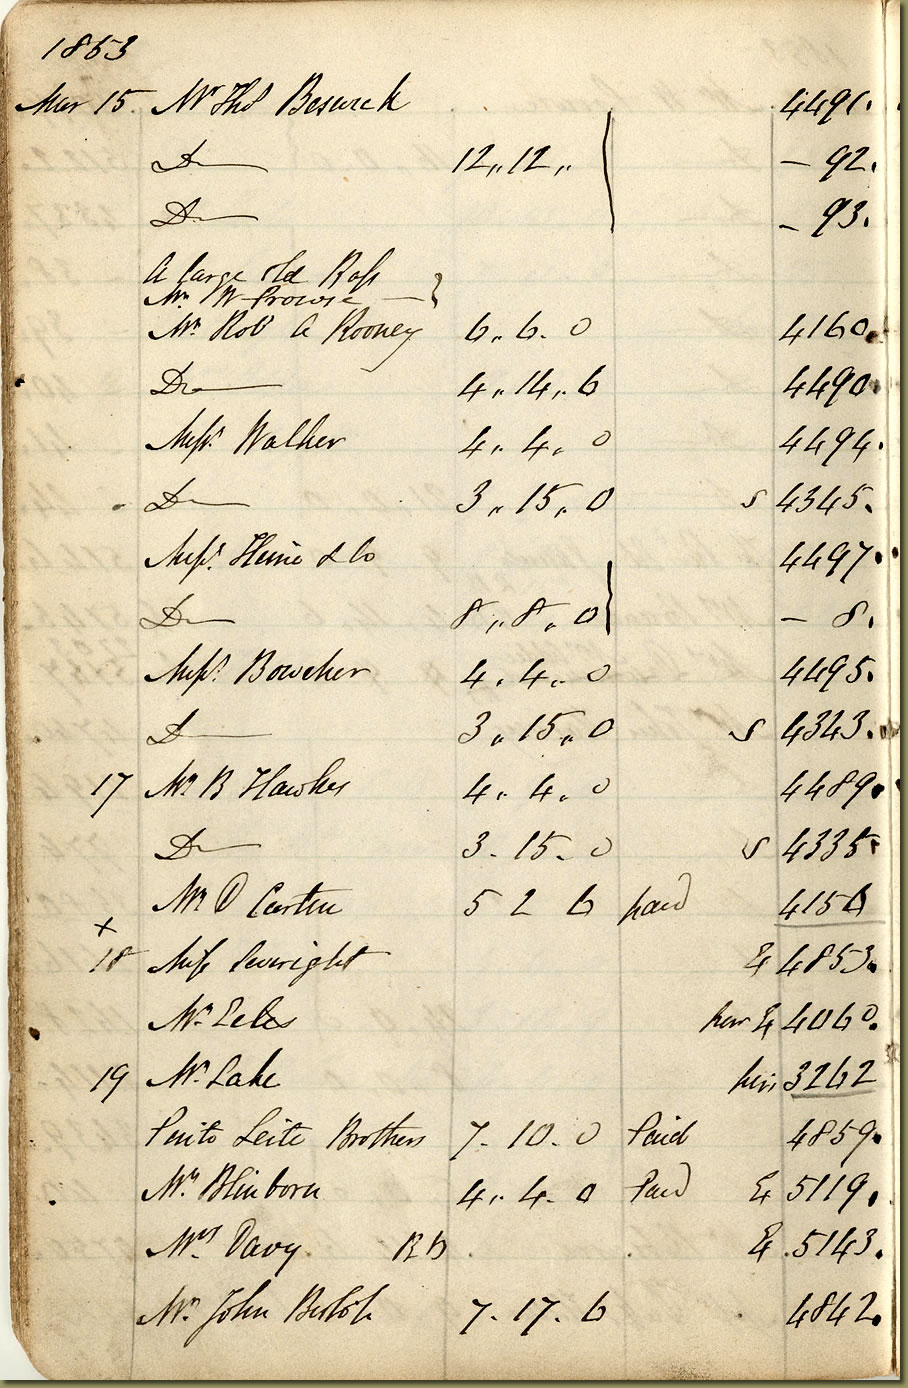 1853
Mar 15 Mr Thos Beswick 4491.
Do 12,,12,, – 92.
Do – 93.
A large old Ross
Mr W Prowse —
Mr Robt A Rooney 6,, 6. 0 4160.
Do 4,, 14,, 6 4490.
Messrs Walker 4,, 4,, 0 4494.
Do 3,, 15,, 0 S 4345.
Messrs Heinie & Co 4497.
Do 8,, 8,, 0 – 8.
Messrs Bowcher 4,, 4,, 0 4495.
Do 3,, 15,, 0 S 4343.
17 Mr B Hawkes 4,, 4,, 0 4489.
Do 3. 15. 0 S 4335.
Mr D Carter 5 2 6 paid 4156
x
18 Miss Severight E 4853.
Mr Eeles E 4060.
19 Mr Lake 3262
Pinto Leite Brothers 7. 10. 0 Paid 4859.
Mr Blinborn 4,, 4. 0 Paid E 5119.
Mrs Davy E 5143.
Mr John 7. 17. 6 4842.